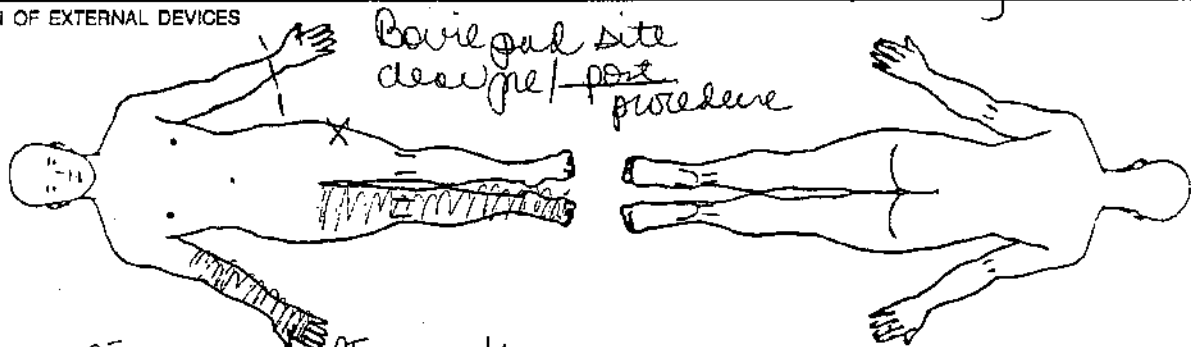 OF EXTERNAL DEVICES
Bovie pad site
clear pre/post
procedure
X